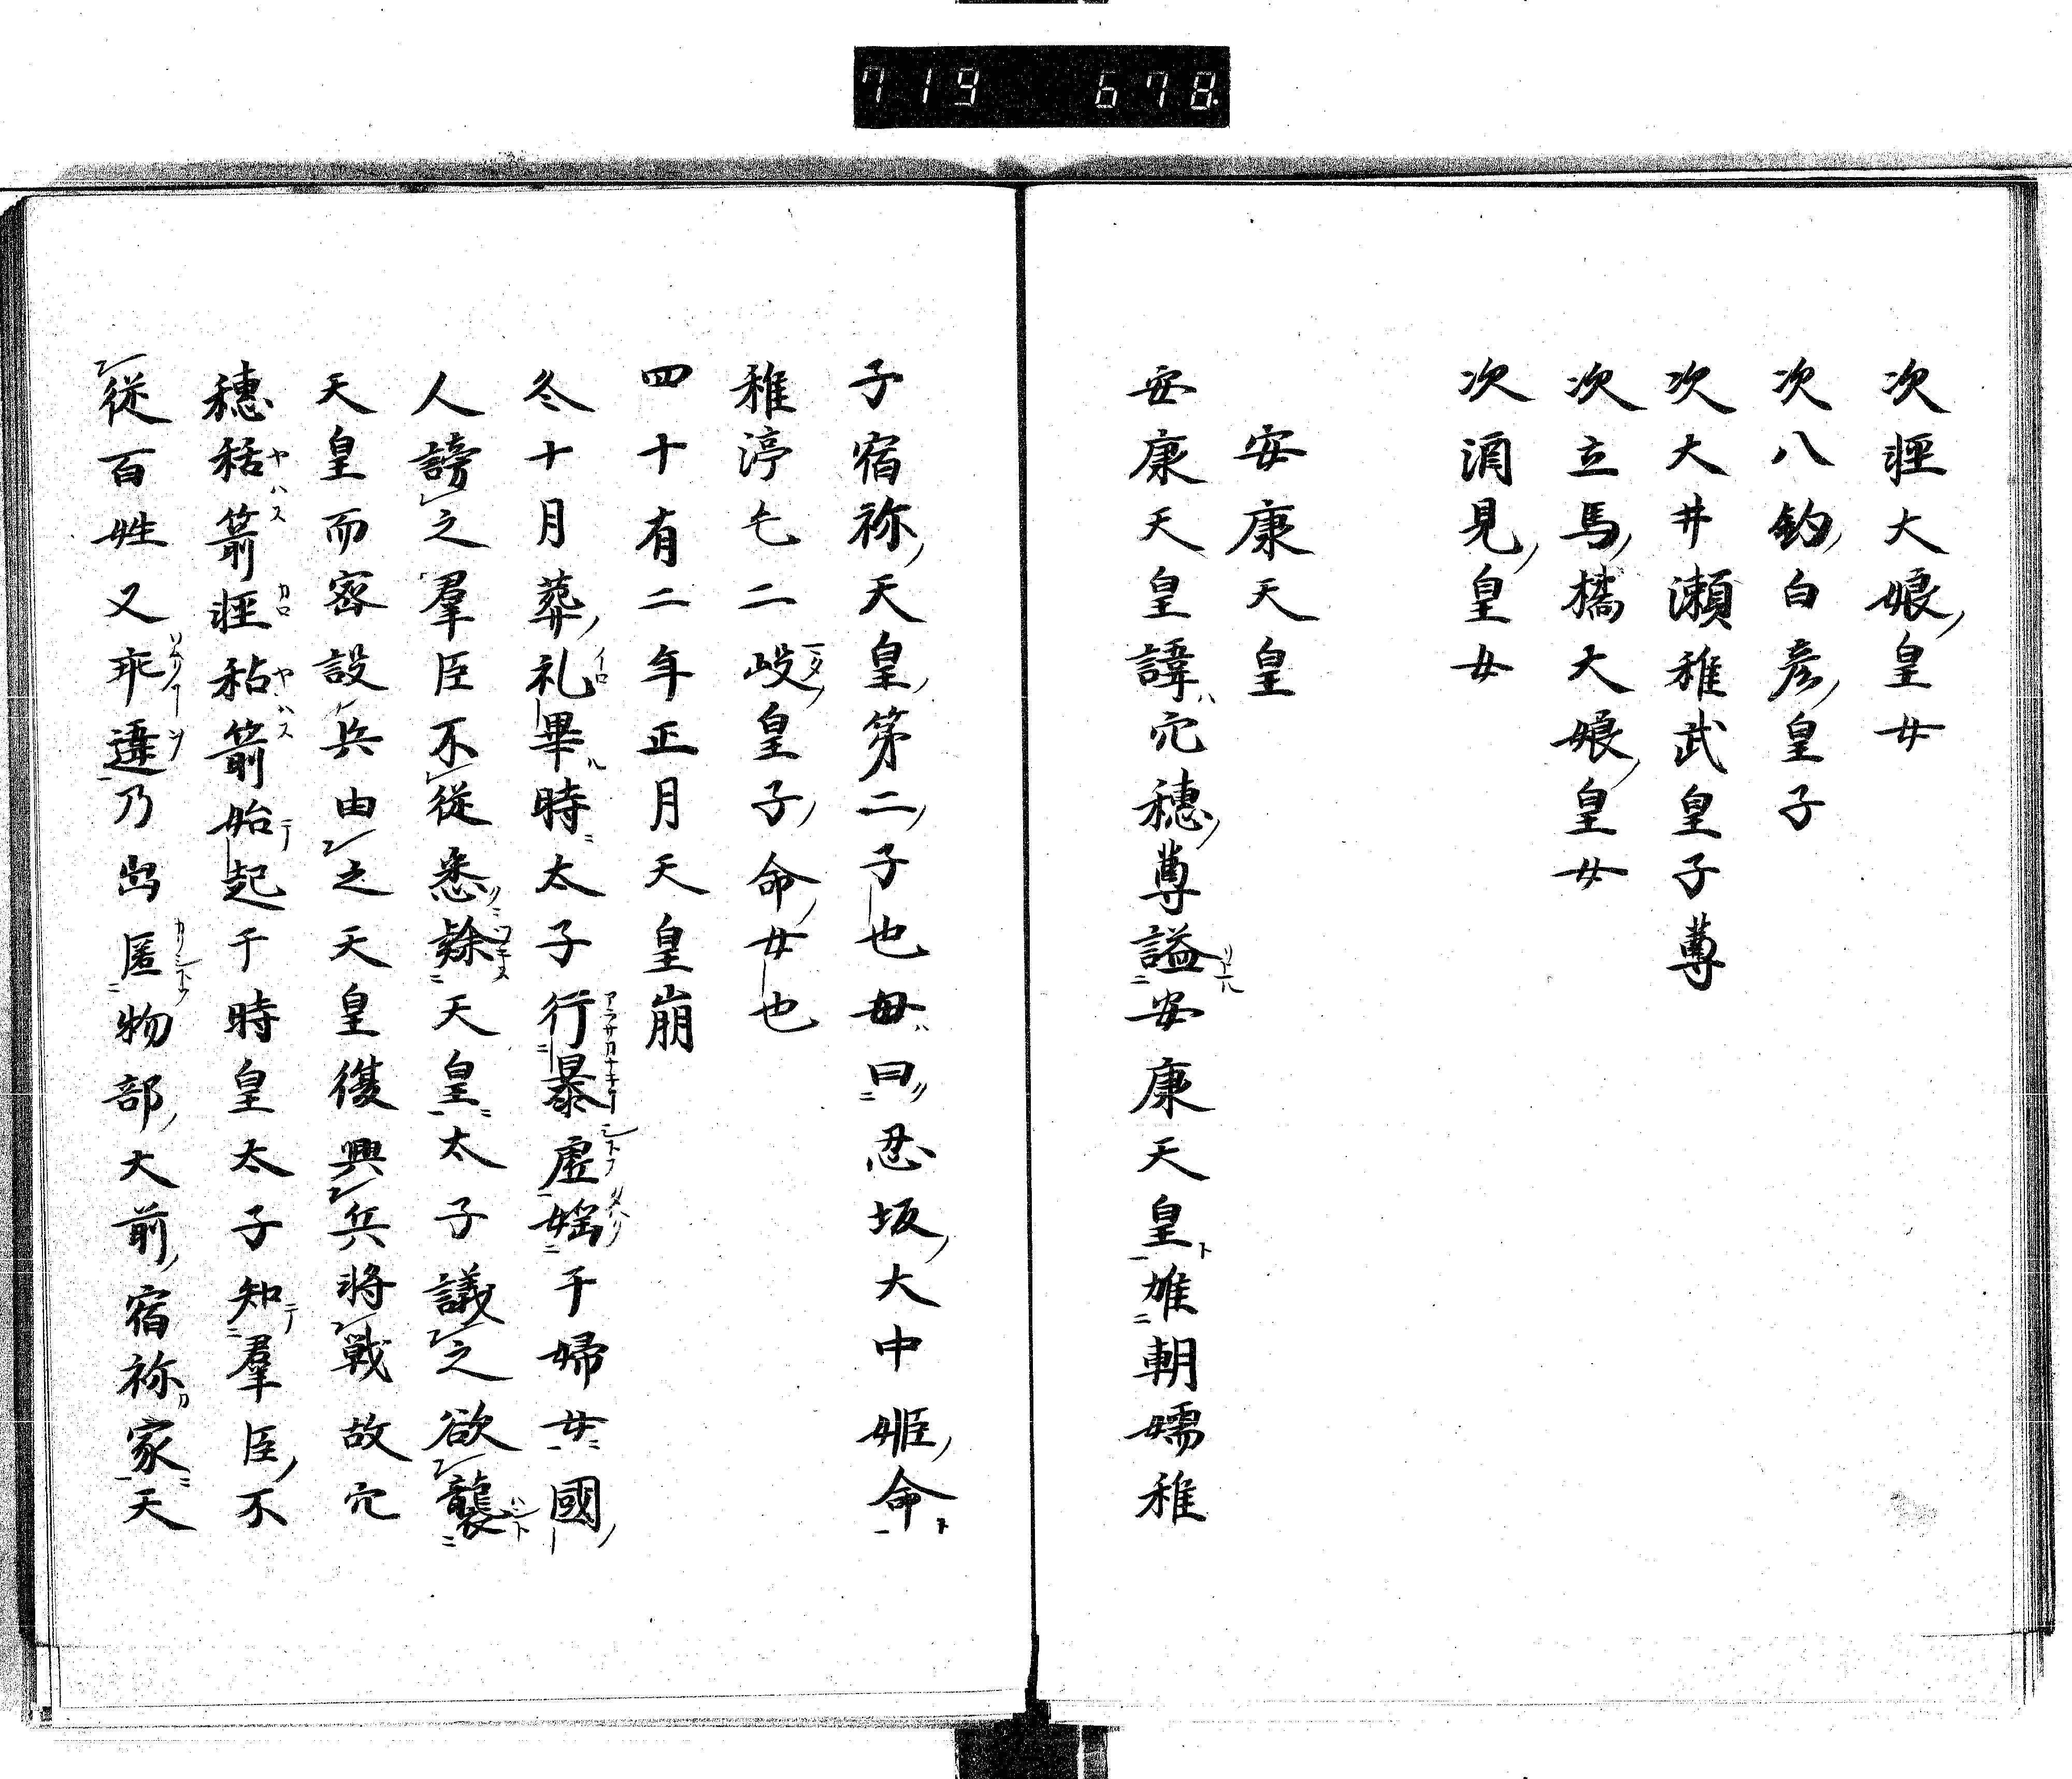 719 678
次軽大娘皇女
次八釣白彦皇子
次大井瀬稚武皇子尊
次立馬橘大娘皇女
次酒見皇女
安康天皇
安康天皇諱穴穂尊謚安康天皇雄朝嬬稚
子宿祢天皇第二子也母曰忍坂大中姫命
稚渟毛二岐皇子命女也
四十有二年正月天皇崩
冬十月葬礼畢時太子行暴虐婬于婦女國
人謗之羣臣不従悉隸天皇太子議之欲襲
天皇而密設兵由之天皇復興兵将戦故穴
穂秳箭軽秥箭始起于時皇太子知羣臣不
従百姓又乖違乃出匿物部大前宿祢家天